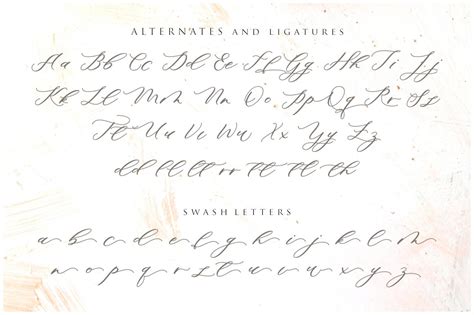 ALTERNATES AND LIGATURES
Aa Bb Cc Dd Ee Ff Gg Hh Ii Jj
Kk Ll Mm Nn Oo Pp Qq Rr Ss
Tt Uu Vv Ww Xx Yy Zz
dd ll tt rr
SWASH LETTERS
a b c d e f g h i j k l m
n o p q r s t u v w x y z